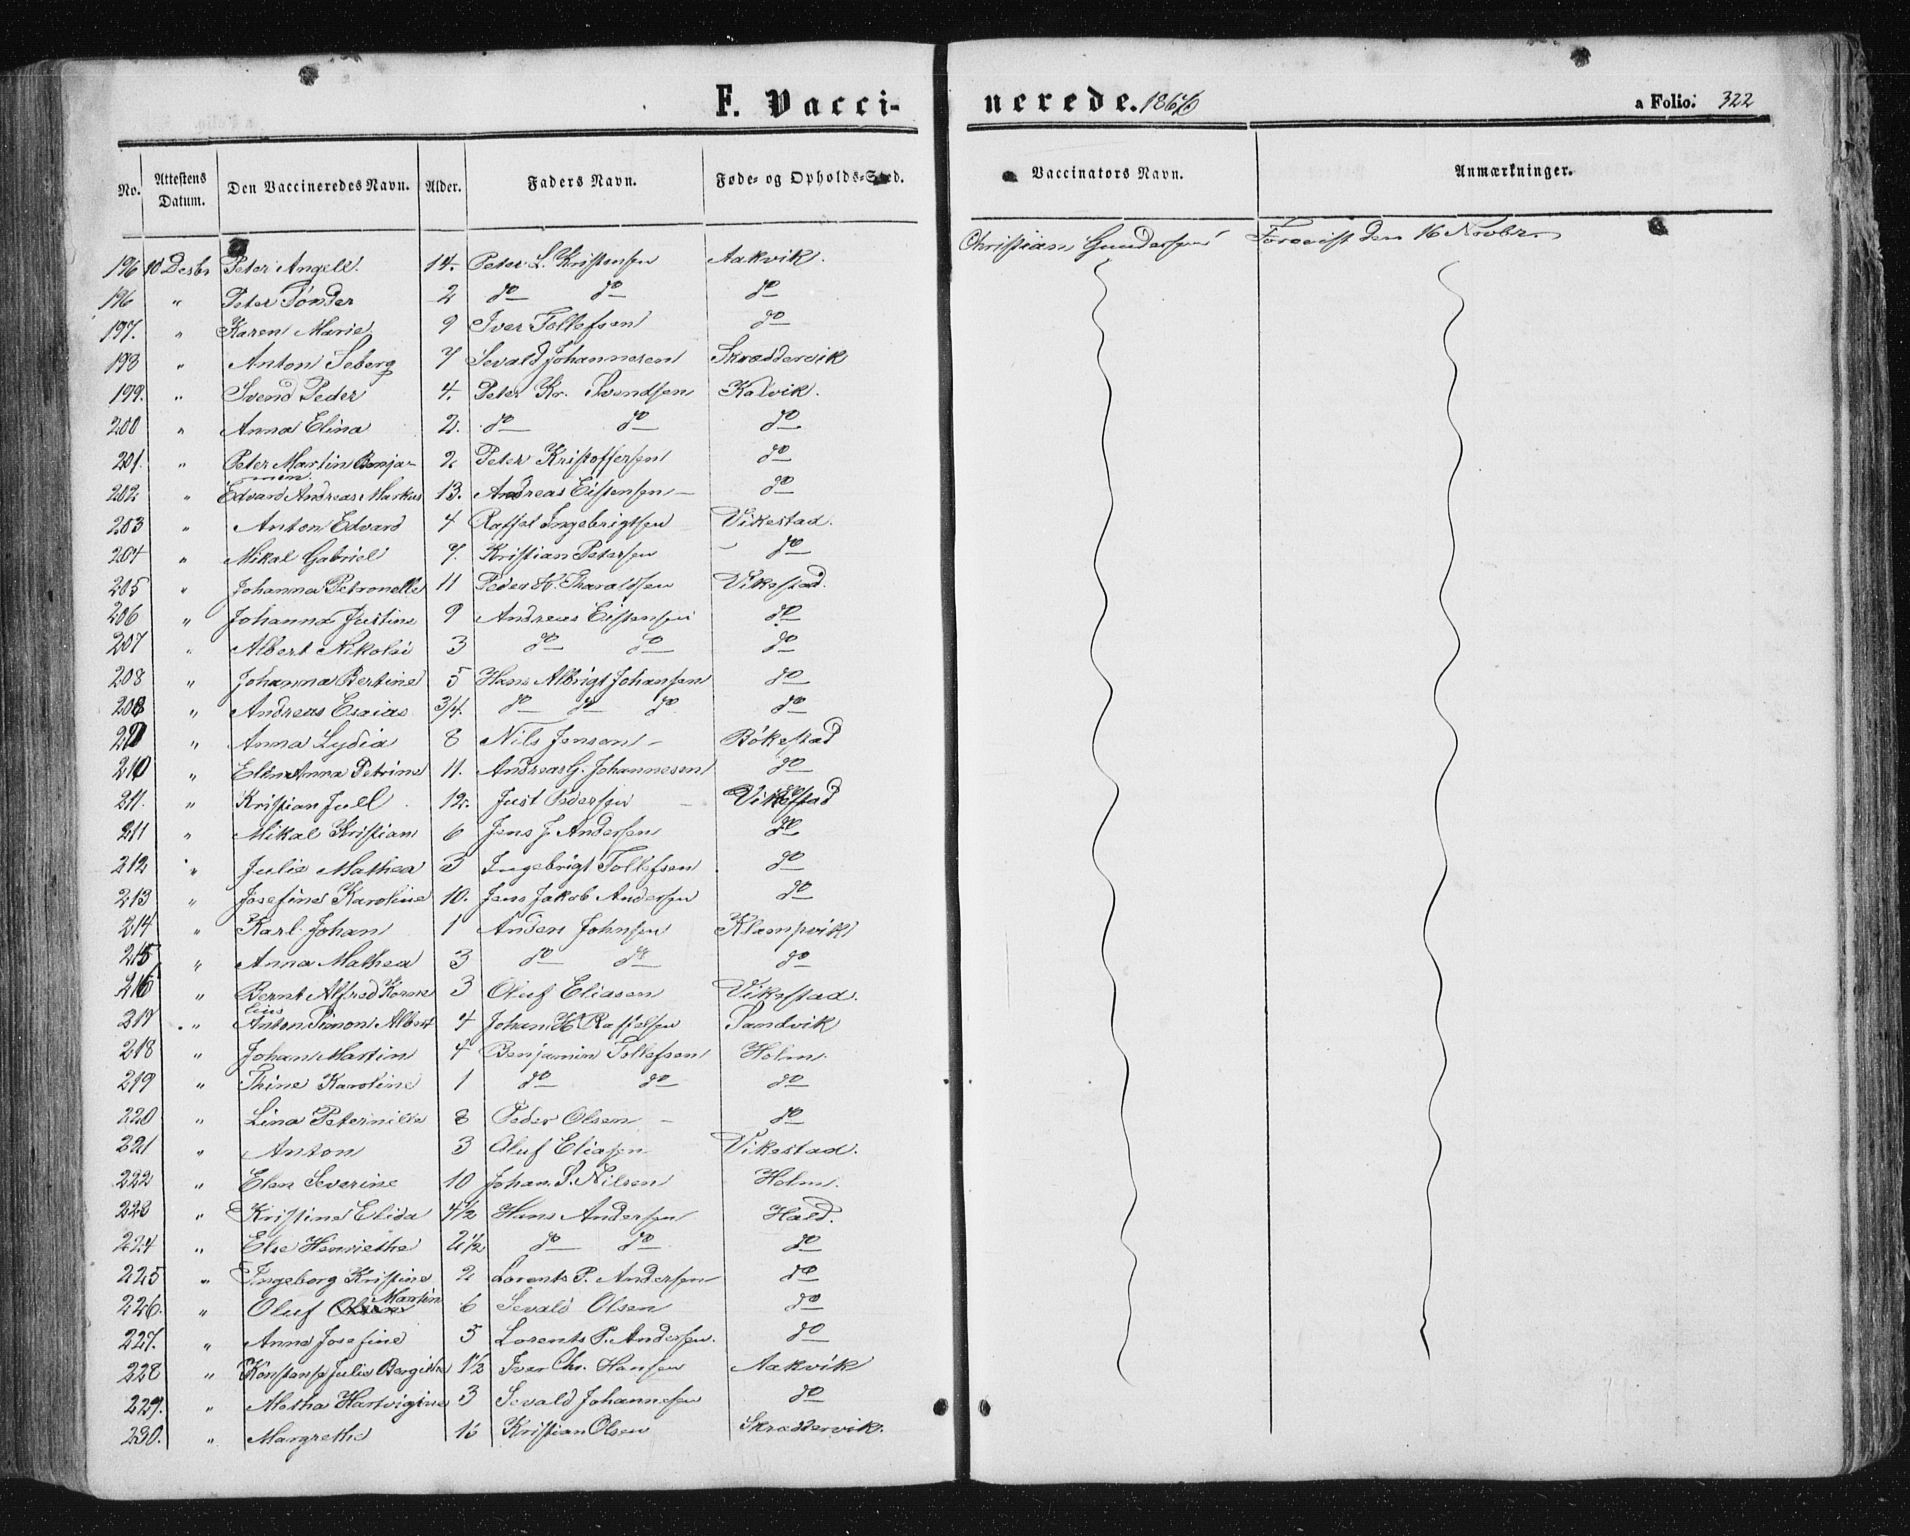 F. Vacci-
nerede. 1866
a Folio: 322
No. | Attestens Datum. | Den Vaccineredes Navn. | Alder. | Faders Navn. | Føde- og Opholds-Sted. | Vaccinators Navn. | Anmærkninger.
196 10 Desbr Peter Angell. 14. Peter L. Kristensen Aakvik. Christian Gundersen Forevist den 16 Novbr.
196 " Peter Tønder 2 do do do
197. " Karen Marie 9 Iver Tollefsen do
198 " Anton Seberg 7 Sevald Johannesen Skræddervik
199. " Svend Peder 4. Peter Kr. Svendsen Kalvik.
200 " Anna Elina 2. do do do
201. " Peter Martin Benja-
min 2 Peter Kristoffersen do
202 " Edvard Andreas Markus 13. Andreas Eistensen - do
203 " Anton Edvard 4 Raffel Ingebrigtsen Vikestad.
204 " Mikal Gabriel 7. Kristian Petersen - do
205 " Johanna Petronelle 11 Peder H. Tharaldsen Vikestad.
206 " Johanna Justine 9 Andreas Eistensen do
207 " Albert Nikolai 3 do do do
208 " Johanna Bertine 5 Hans Albrigt Johansen do
208 " Andreas Esaias 3/4. do do do do
" Anna Lydia 8 Nils Jensen - Bökestad
210 " Elen Anna Petrine 11. Andreas G. Johannesen do
211. " Kristian Jull 12. Just Pedersen - Vikestad
211 " Mikal Kristian 6 Jens J. Andersen do
212 " Julie Mathea 3 Ingebrigt Tollefsen do
213 " Josefine Karoline 10. Jens Jakob Andersen do
214 " Karl Johan 1 Anders Johnsen Klampvik
215 " Anna Mathea 3 do do do
216 " Bernt Alfred Korne
lius 3 Oluf Eliasen Vikestad.
217 " Anton Simon Albert 4 Johan H Raffelsen Sandvik
218 " Johan Martin 4 Benjamin Tollefsen Holm.
219 " Trine Karoline 1 do do do
220 " Lina Peternille 8 Peder Olsen - do
221 " Anton 3 Oluf Eliasen Vikestad.
222 " Elen Severine 10 Johan S. Nilsen Holm.
223 " Kristine Elida 4 1/2 Hans Andersen Hald.
224 " Else Henriethe 2 1/2 do do do
225 " Ingeborg Kristine 2 Lorents P. Andersen do
226. " Oluf Martin 6 Sevald Olsen do
227. " Anne Josefine 5 Lorents P. Andersen. do
228 " Konstanse Julie Bergithe 1 1/2 Iver Chr. Hansen Aakvik
229. " Metha Hartvigine 3 Sevald Johannesen do
230. " Margrethe Kristian Olsen Skræddervik.